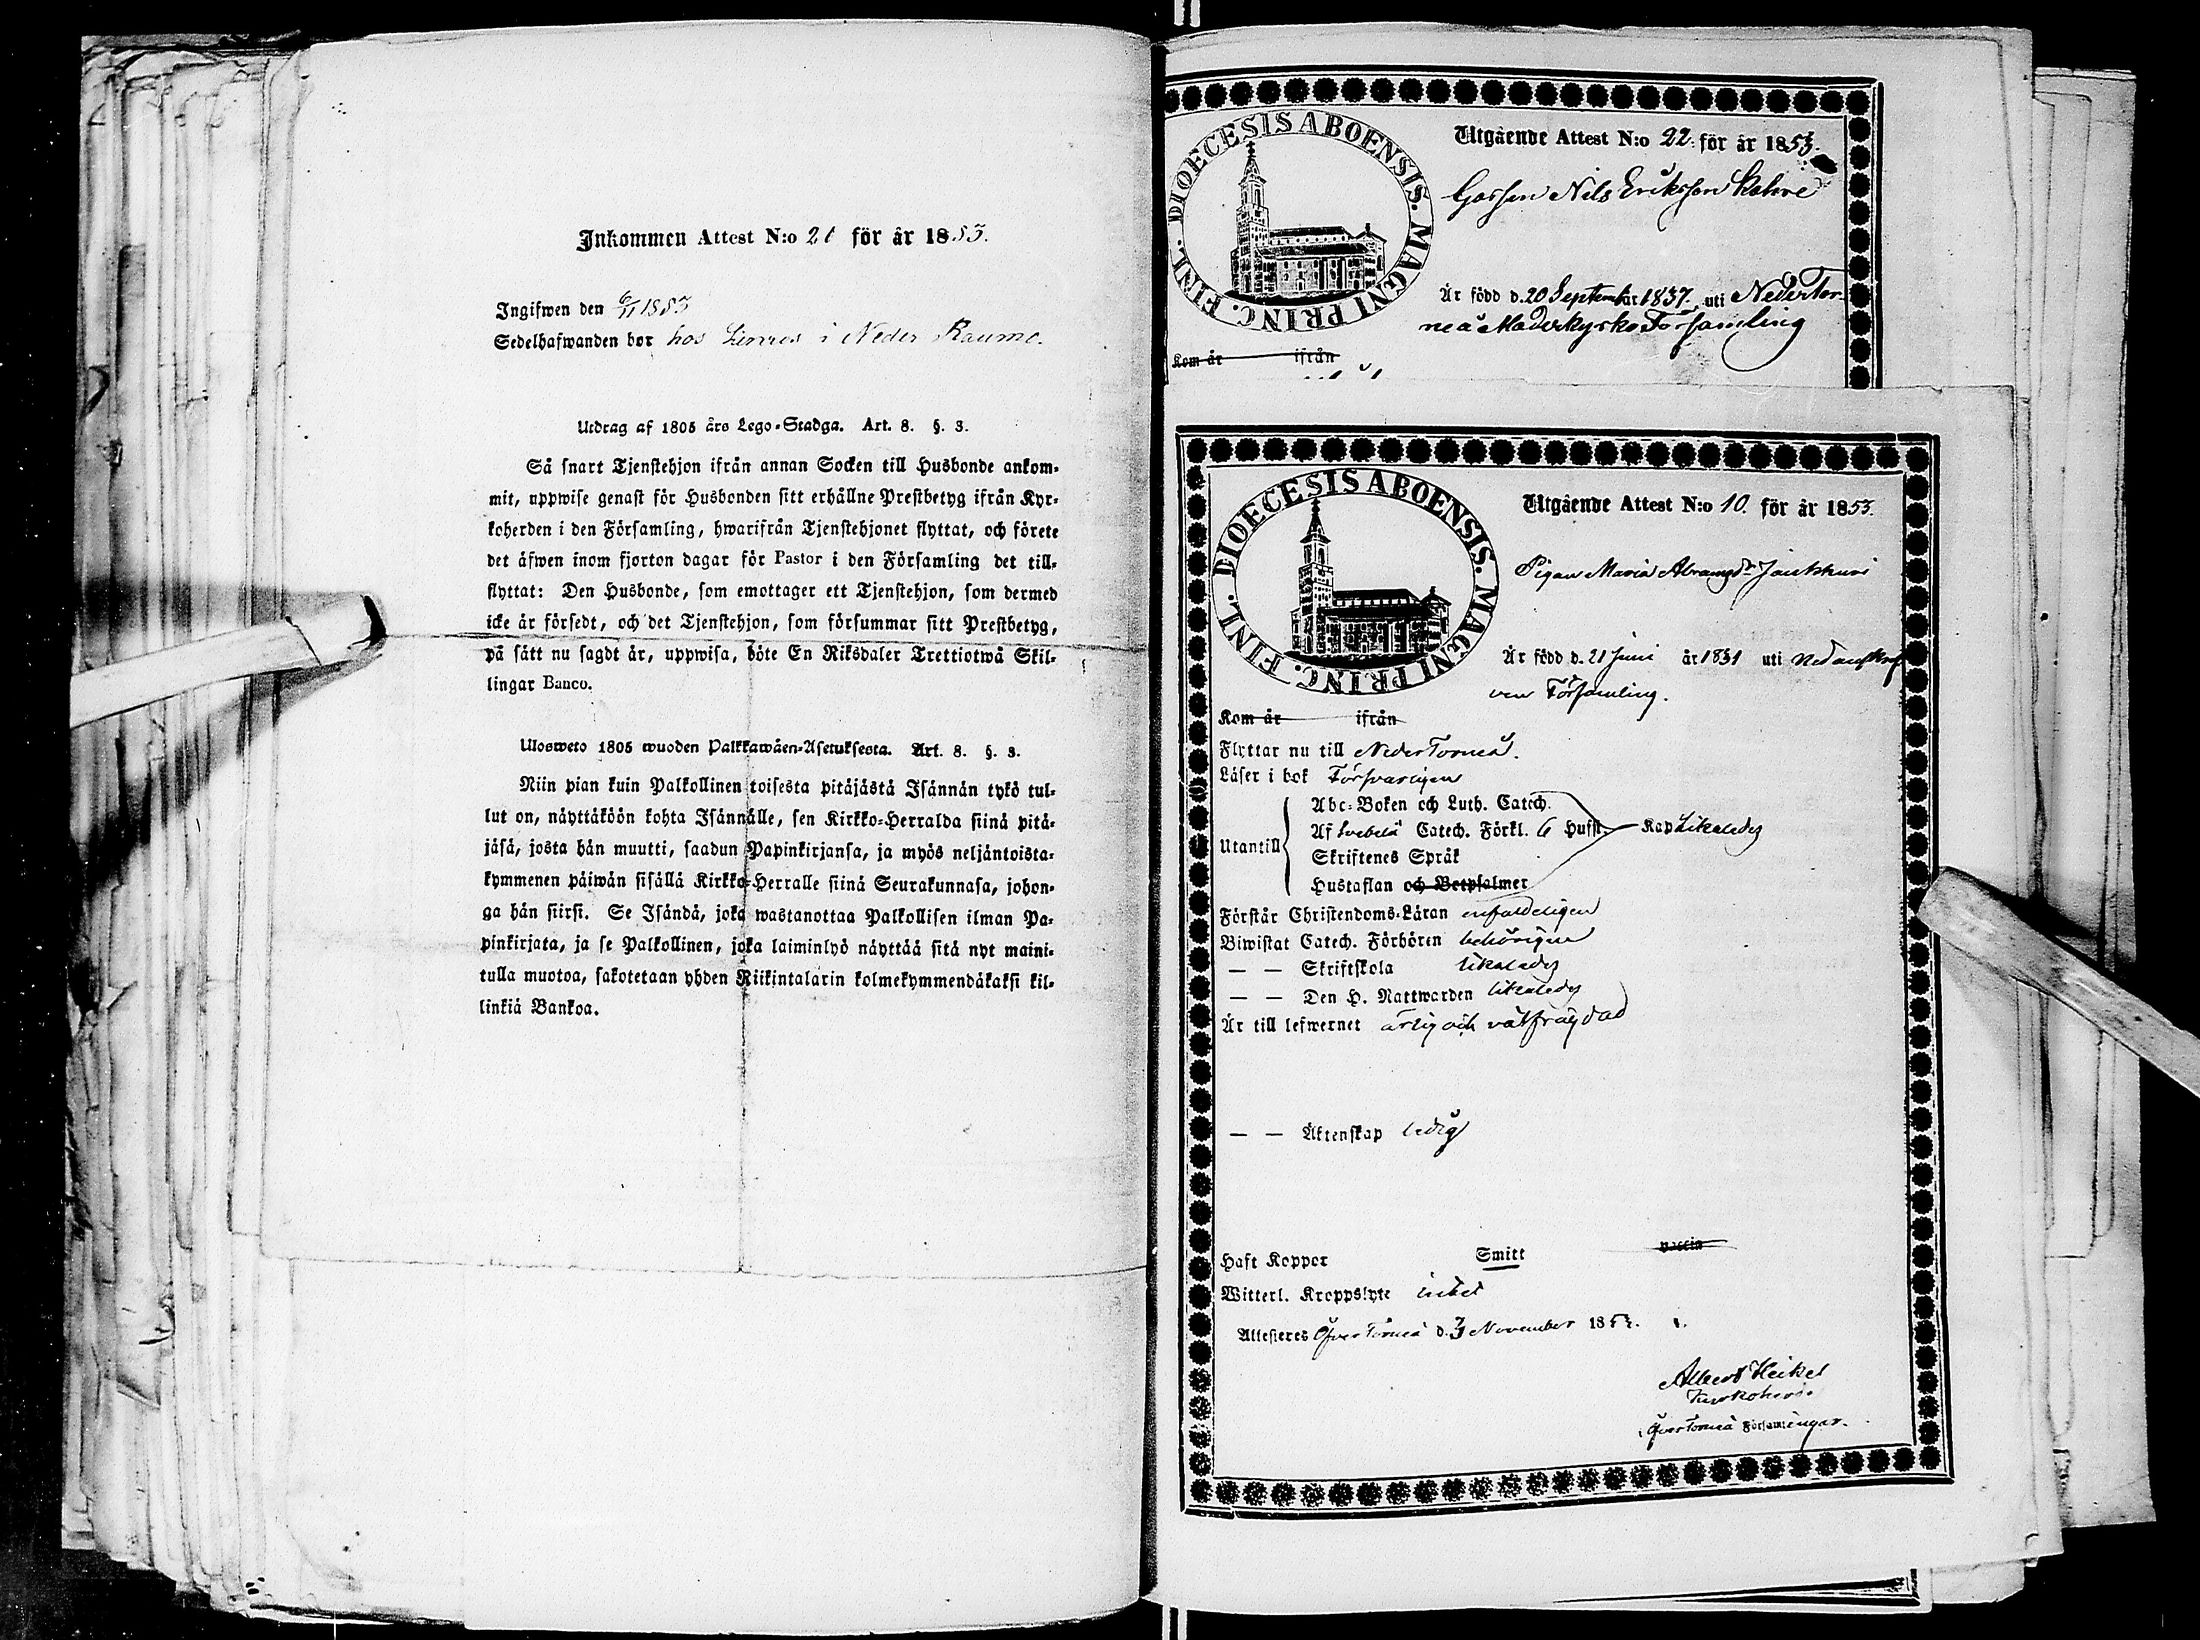 Inkommen Attest N:o 21 för år 1853.
Ingifwen den 6/11 1853
Sedelhafwanden bor hos i Neder Raumo.
Utdrag af 1805 års Lego-Stadga. Art. 8. §. 3.
Så snart Tjenstehjon ifrån annan Socken till Husbonde ankom-
mit, uppwise genast för Husbonden sitt erhållne Prestbetyg ifrån Kyr-
koherden i den Församling, hwarifrån Tjenstehjonet flyttat, och förete
det äfwen inom fjorton dagar för Pastor i den Församling det till-
flyttat: Den Husbonde, som emottager ett Tjenstehjon, som dermed
icke är försedt, och det Tjenstehjon, som försummar sitt Prestbetyg,
på sätt nu sagdt är, uppwisa, böte En Riksdaler Trettiotwå Skil-
lingar Banco.
Ulosweto 1805 wuoden Palkkawäen-Asetuksesta. Art. 8. §. 3.
Niin pian kuin Palkollinen toisesta pitäjästä Isännän tykö tul-
lut on, näyttäköön kohta Isännälle, sen Kirkko-Herralda siinä pitä-
jäsä, josta hän muutti, saadun Papinkirjansa, ja myös neljäntoista-
kymmenen päiwän sisällä Kirkko-Herralle siinä Seurakunnasa, johon-
ga hän siirsi. Se Isändä, joka wastanottaa Palkollisen ilman Pa-
pinkirjata, ja se Palkollinen, joka laiminlyö näyttää sitä nyt maini-
tulla muotoa, sakotetaan yhden Riikintalarin kolmekymmendäkaksi kil-
linkiä Bankoa.
DIOECESIS ABOENSIS. MAGNI PRINC. FINL.
Utgående Attest N:o 22 för år 1853.
Gossen Nils Eriksson
Är född d. 20 September år 1837. uti Neder Tor-
neå Moderkyrko Församling
Kom år ifrån
DIOECESIS ABOENSIS. MAGNI PRINC. FINL.
Utgående Attest N:o 10. för år 1853.
Pigan Maria Abramsdr
Är född d. 21 Juni år 1831 uti nedanskref-
ven Församling.
Kom år ifrån
Flyttar nu till Neder Torneå.
Läser i bok Försvarligen
Utantill
Abc-Boken och Luth. Catech.
Af Svebelii Catech. Förkl. 6 Hufst. Kap Likaledes
Skriftenes Språk
Hustaflan och Botpsalmer
Förstår Christendoms-Läran enfaldeligen
Biwistat Catech. Förhören behörigen
— — Skriftskola likaledes
— — Den H. Nattwarden likaledes
Är till lefwernet ärlig och välfrägdad
— — Äktenskap ledig
Haft Koppor Smitt vaccin
Witterl. Kroppslyte intet
Attesteres Öfver Torneå d. 3 November 1853.
Albert Heikel
Kyrkoherde
i Öfver Torneå Församlingar.